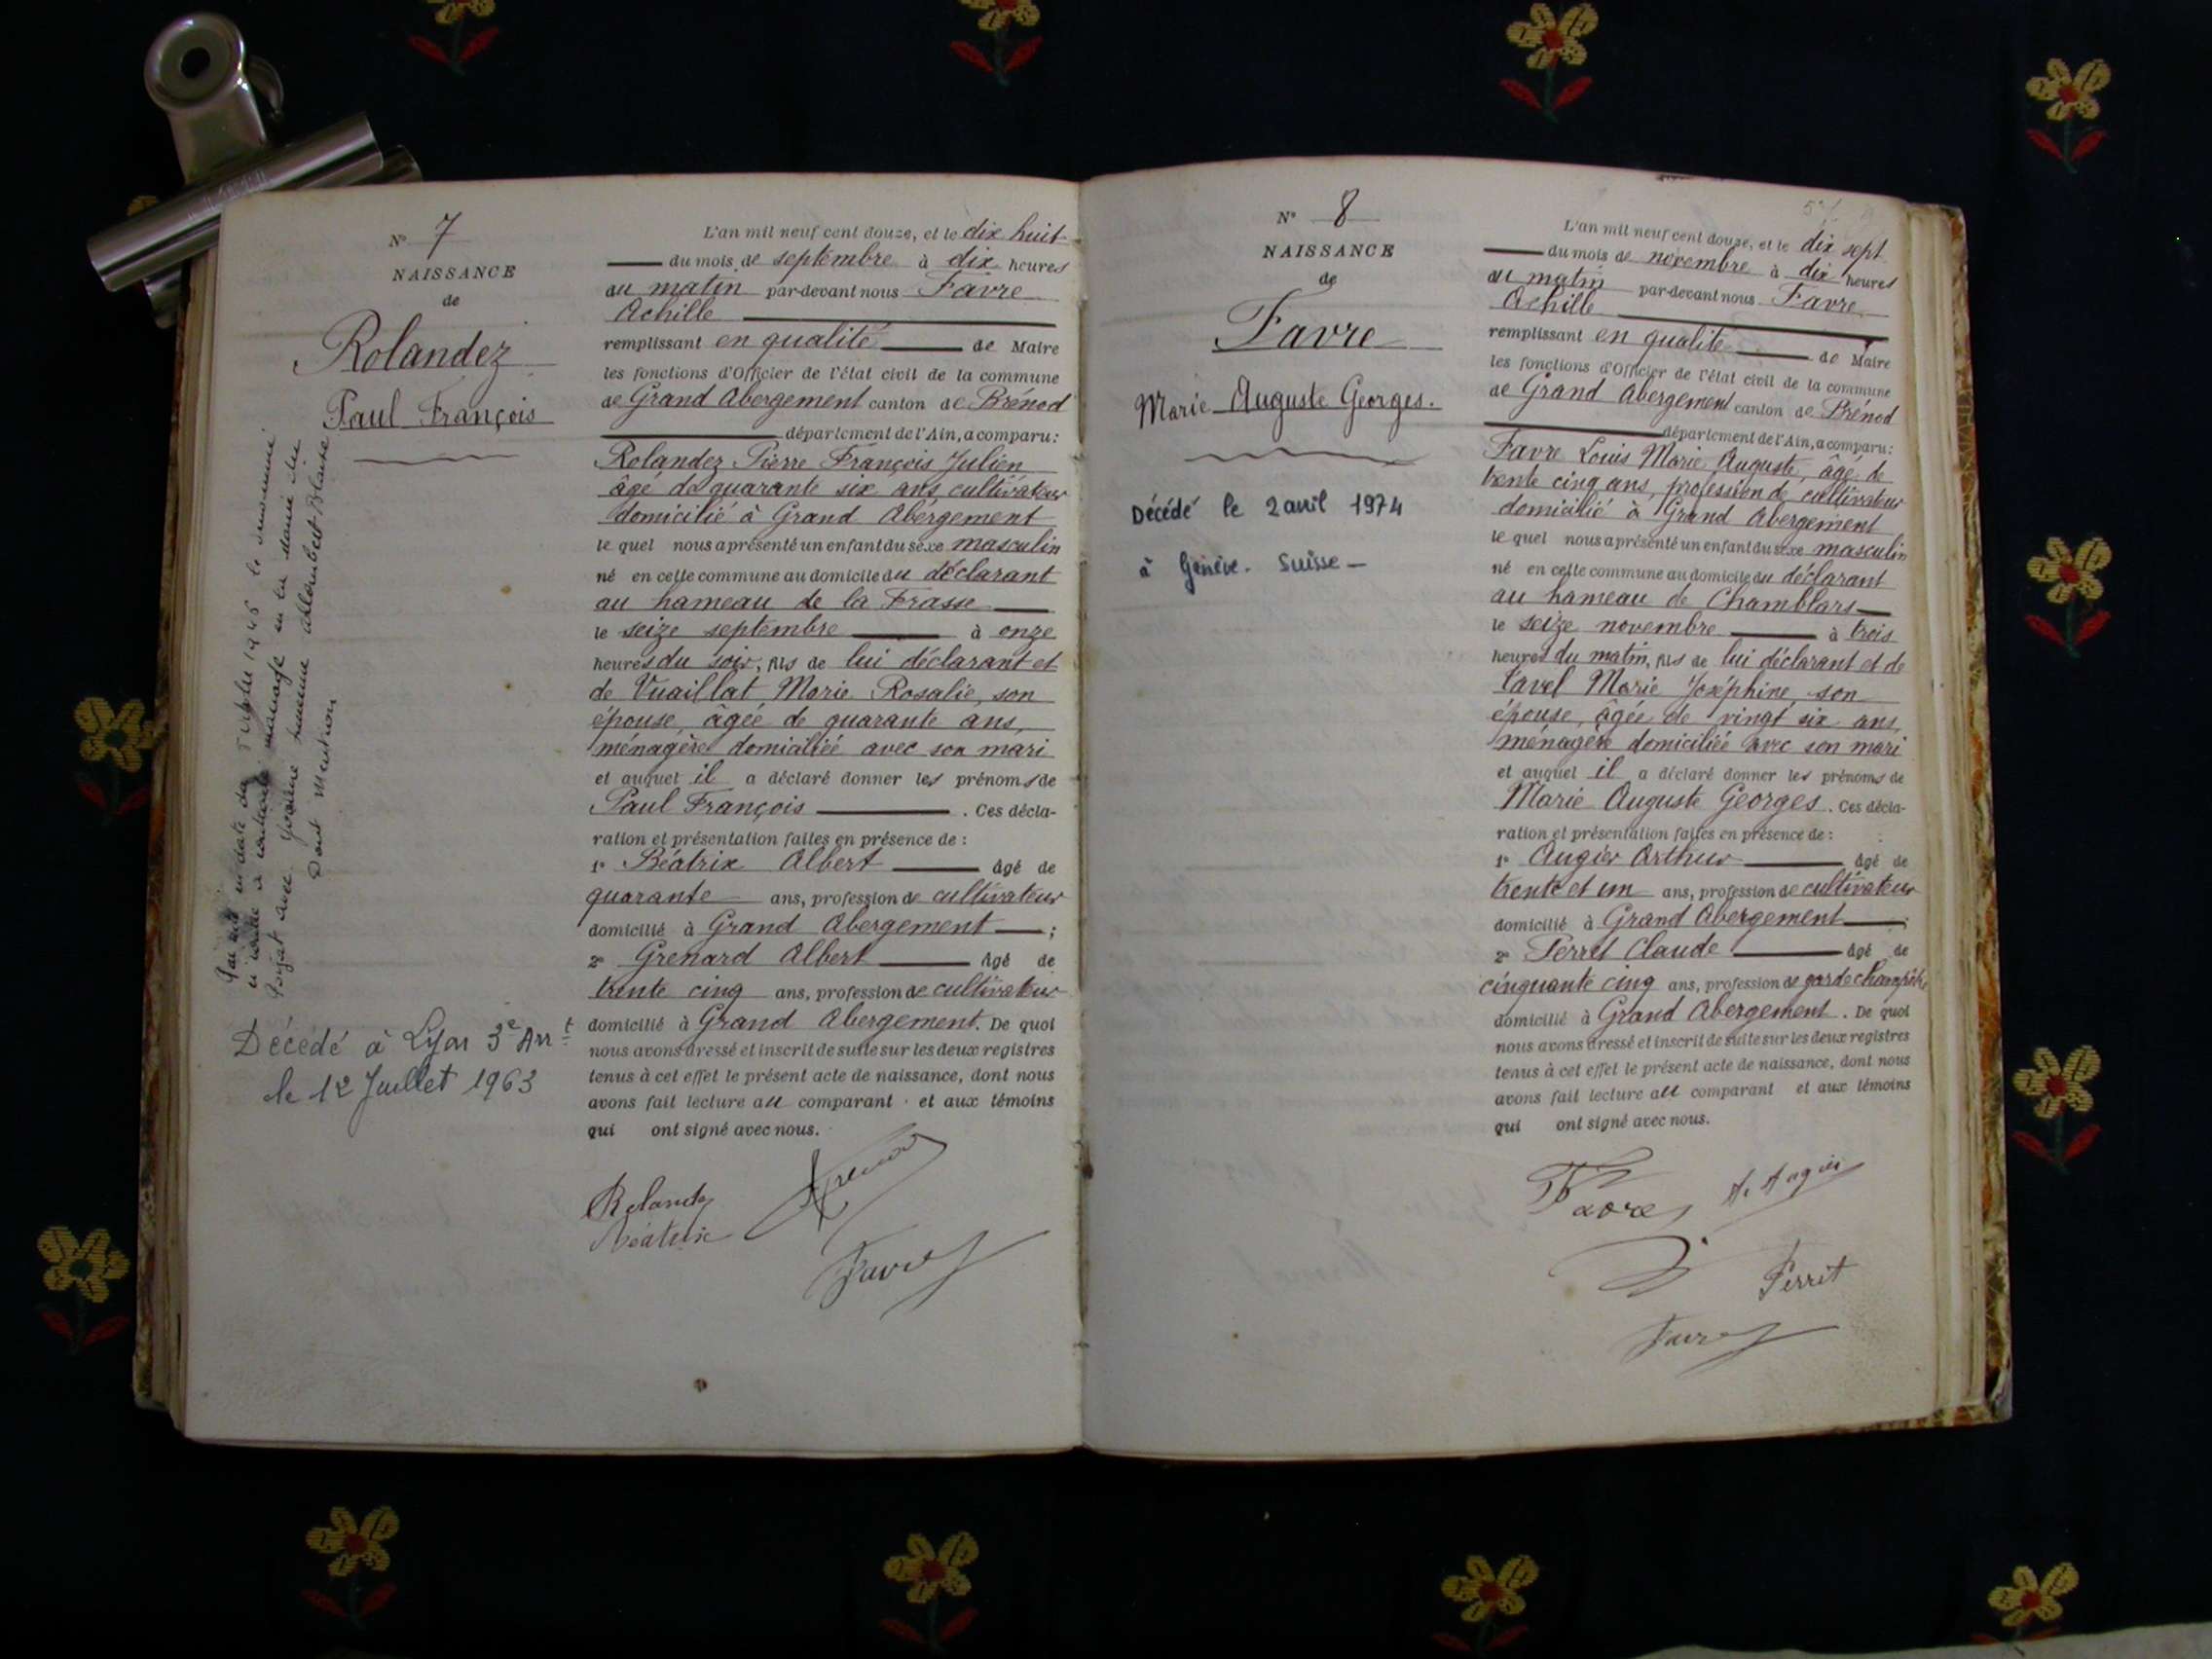 N° 7
NAISSANCE
de
Rolandez
Paul François
Par acte en date du 1946 le susnommé
a contracté mariage en la mairie du
avec Yvonne Jeanne Blaise
Dont mention
Décédé à Lyon 3e Arrt
le 12 Juillet 1963
L'an mil neuf cent douze, et le dix huit
du mois de septembre à dix heures
du matin par-devant nous Favre
Achille
remplissant en qualité de Maire
les fonctions d'Officier de l'état civil de la commune
de Grand Abergement canton de Brénod
département de l'Ain, a comparu:
Rolandez Pierre François Julien
âgé de quarante six ans, cultivateur
domicilié à Grand Abergement
le quel nous a présenté un enfant du sexe masculin
né en cette commune au domicile du déclarant
au hameau de la Frasse
le seize septembre à onze
heures du soir, fils de lui déclarant et
de Vuaillat Marie Rosalie, son
épouse, âgée de quarante ans,
ménagère domiciliée avec son mari
et auquel il a déclaré donner les prénoms de
Paul François . Ces décla-
ration et présentation faites en présence de :
1° Béatrix Albert âgé de
quarante ans, profession de cultivateur
domicilié à Grand Abergement ;
2° Grenard Albert âgé de
trente cinq ans, profession de cultivateur
domicilié à Grand Abergement. De quoi
nous avons dressé et inscrit de suite sur les deux registres
tenus à cet effet le présent acte de naissance, dont nous
avons fait lecture au comparant et aux témoins
qui ont signé avec nous.
Rolandez
Béatrix
Favre
N° 8
NAISSANCE
de
Favre
Marie Auguste Georges.
Décédé le 2 avril 1974
à Genève. Suisse –
L'an mil neuf cent douze, et le dix sept
du mois de novembre à dix heures
du matin par-devant nous Favre
Achille
remplissant en qualité de Maire
les fonctions d'Officier de l'état civil de la commune
de Grand Abergement canton de Brénod
département de l'Ain, a comparu:
Favre Louis Marie Auguste, âgé de
trente cinq ans, profession de cultivateur
domicilié à Grand Abergement
le quel nous a présenté un enfant du sexe masculin
né en cette commune au domicile du déclarant
au hameau de Chamblars
le seize novembre à trois
heures du matin, fils de lui déclarant et de
Tavel Marie Joséphine, son
épouse, âgée de vingt six ans,
ménagère domiciliée avec son mari
et auquel il a déclaré donner les prénoms de
Marie Auguste Georges. Ces décla-
ration et présentation faites en présence de :
1° Augier Arthur âgé de
trente et un ans, profession de cultivateur
domicilié à Grand Abergement ;
2° Perret Claude âgé de
cinquante cinq ans, profession de garde champêtre
domicilié à Grand Abergement. De quoi
nous avons dressé et inscrit de suite sur les deux registres
tenus à cet effet le présent acte de naissance, dont nous
avons fait lecture au comparant et aux témoins
qui ont signé avec nous.
Favre
A. Augier
Perret
Favre